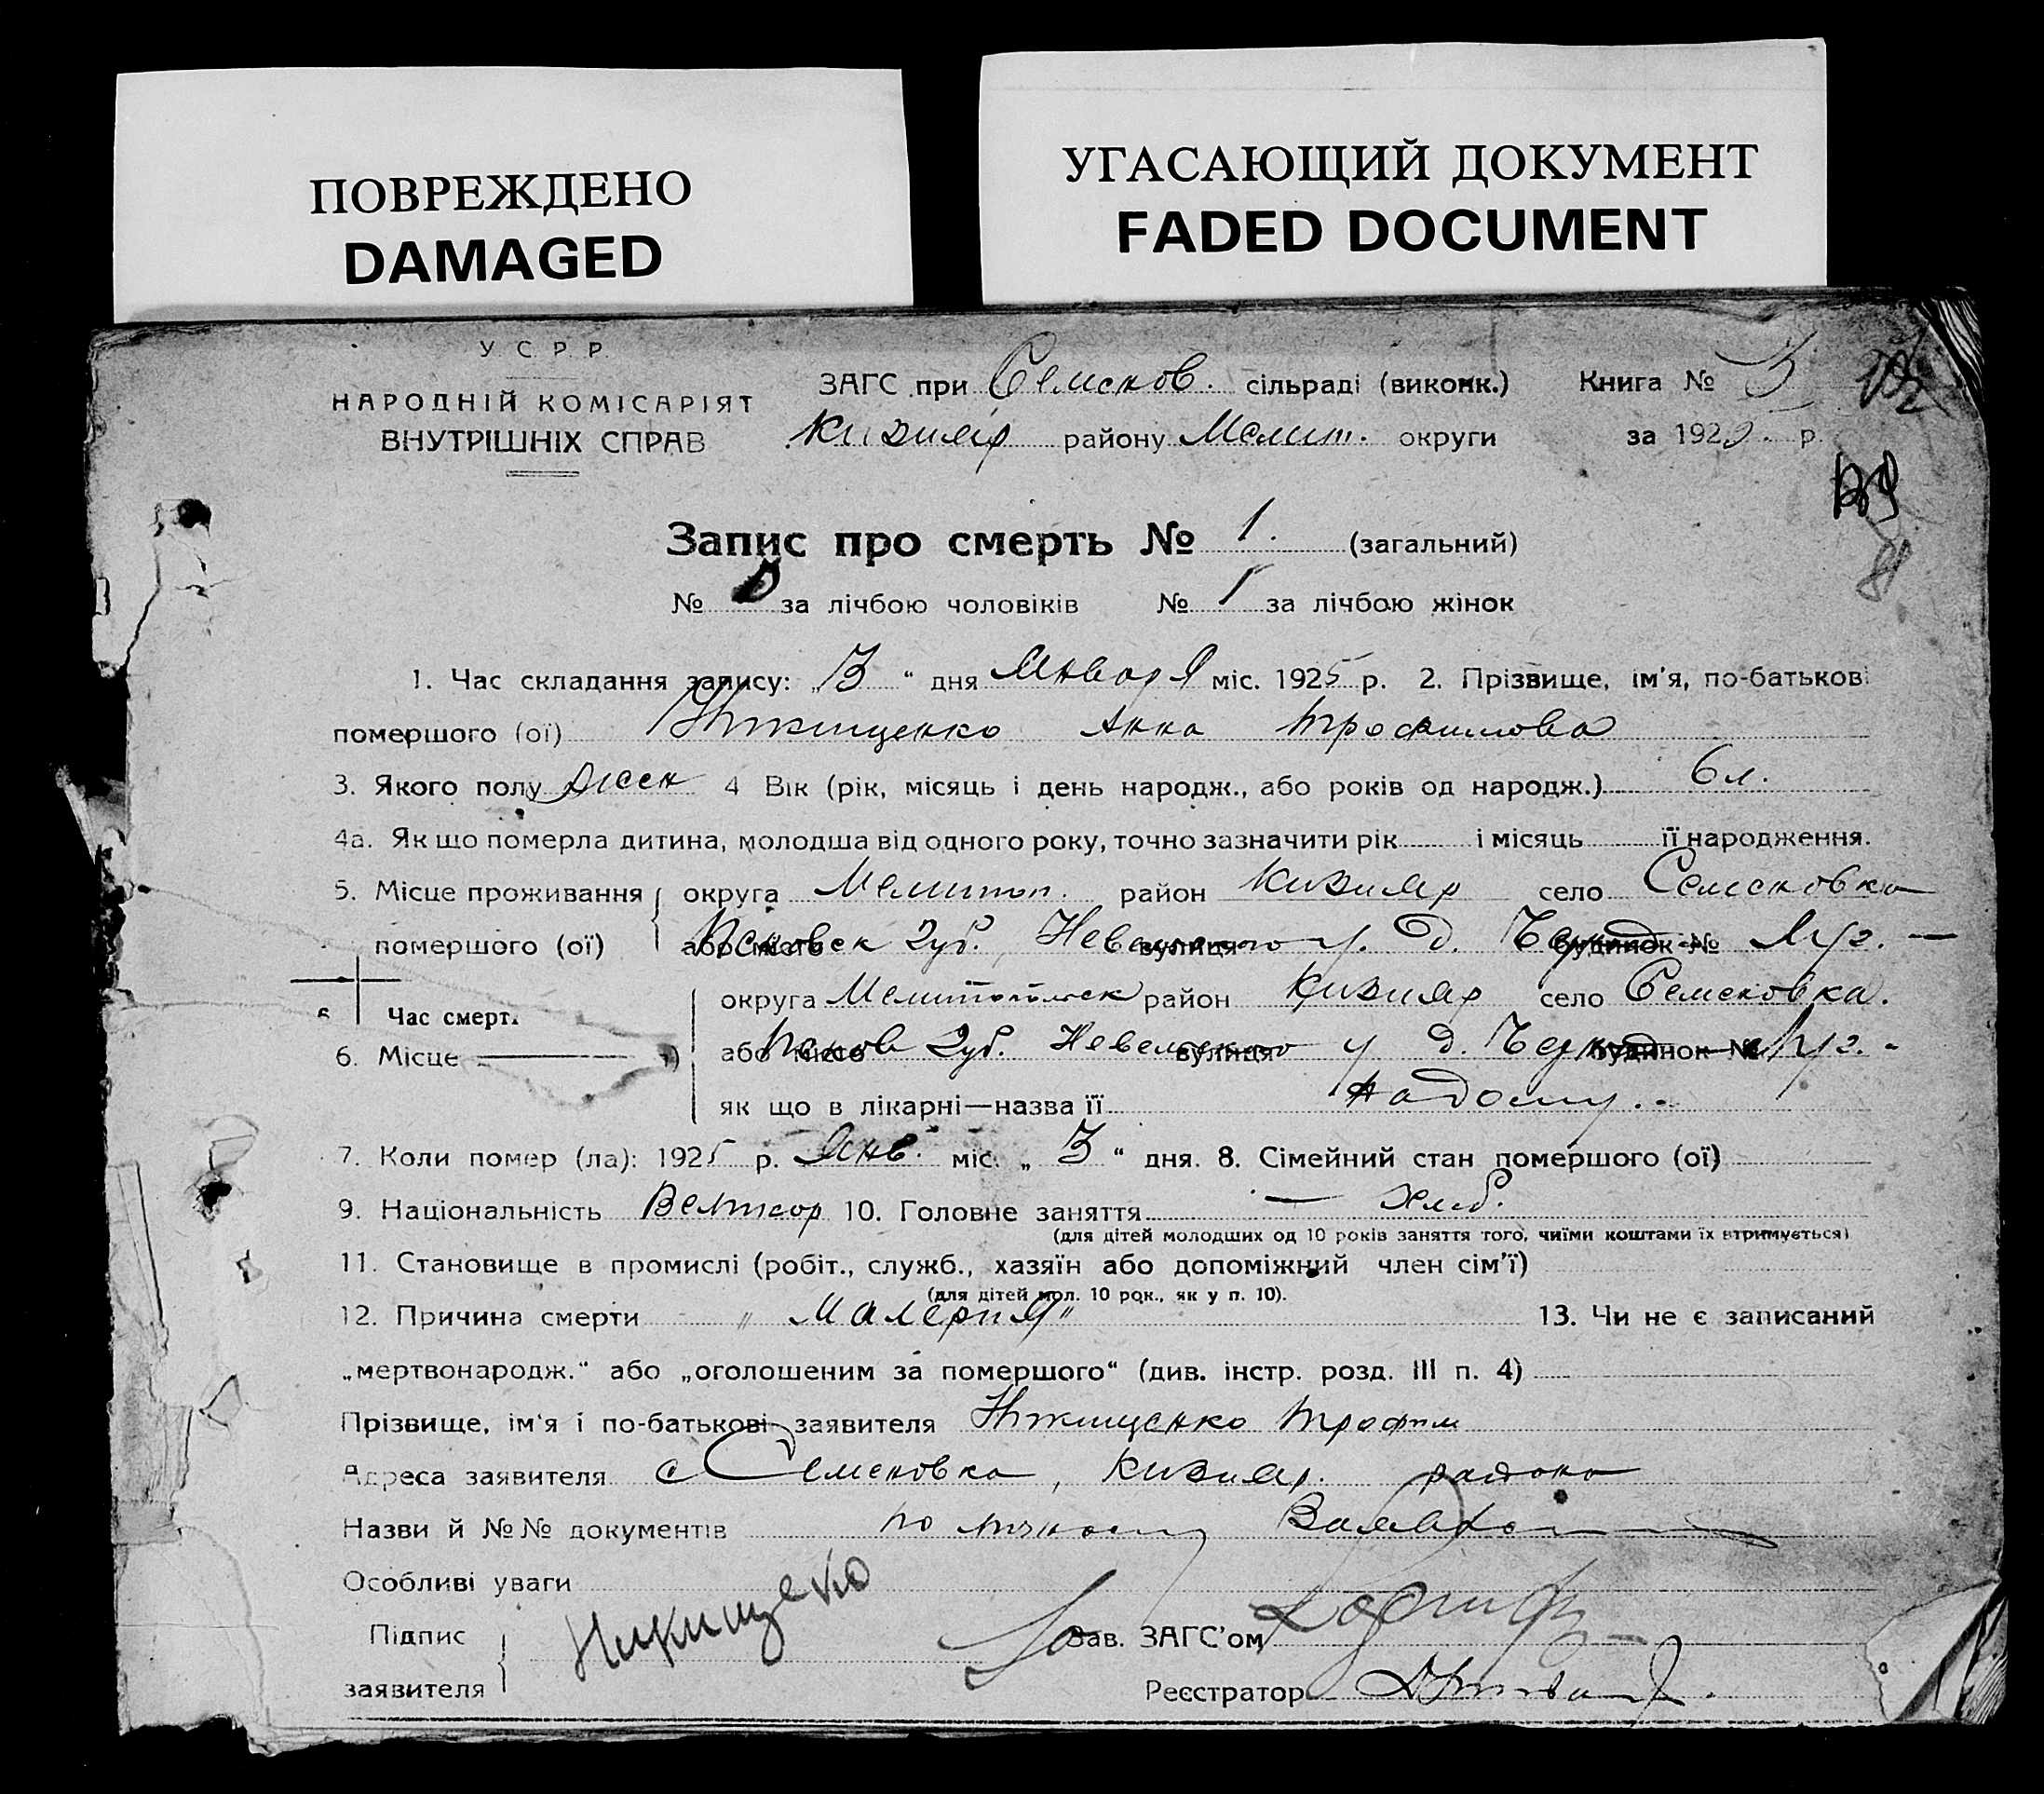 ПОВРЕЖДЕНО
DAMAGED
УГАСАЮЩИЙ ДОКУМЕНТ
FADED DOCUMENT
У. С. Р. Р.
НАРОДНІЙ КОМІСАРІЯТ
ВНУТРІШНІХ СПРАВ
ЗАГС при Семенов. сільраді (виконк.) Книга № 3
Кизияр району Мелит. округи за 1925 р.
Запис про смерть № 1. (загальний)
№ за лічбою чоловіків № 1 за лічбою жінок
1. Час складання запису: „3“ дня Января міс. 1925 р. 2. Прізвище, ім'я, по-батькові
помершого (ої) Никищенко Анна Трофимова
3. Якого полу жен 4 Вік (рік, місяць і день народж., або років од народж.) 6 л.
4а. Як що померла дитина, молодша від одного року, точно зазначити рік і місяць її народження.
5. Місце проживання округа Мелитоп. район Кизияр село Семеновка
помершого (ої) або місто Псковск губ. Невельского вулиця у. д. будинок №
округа Мелитопольск район Кизияр село Семеновка.
6 Час смерт.
6. Місце або місто Псков губ. Невельского вулиця у д. будинок №
як що в лікарні—назва її на дому.
7. Коли помер (ла): 1925 р. Янв. міс. „3“ дня. 8. Сімейний стан помершого (ої)
9. Національність Великор 10. Головне заняття — хлеб.
(для дітей молодших од 10 років заняття того, чиїми коштами їх втримується)
11. Становище в промислі (робіт., служб., хазяїн або допоміжний член сім'ї)
(для дітей мол. 10 рок., як у п. 10).
12. Причина смерти „Малерия“ 13. Чи не є записаний
„мертвонародж.“ або „оголошеним за помершого“ (див. інстр. розд. III п. 4)
Прізвище, ім'я і по-батькові заявителя Никищенко Трофим
Адреса заявителя с Семеновка, Кизияр. района
Назви й №№ документів по личному
Особливі уваги
Підпис
заявителя
Никищенко
Зав. ЗАГС'ом
Реєстратор